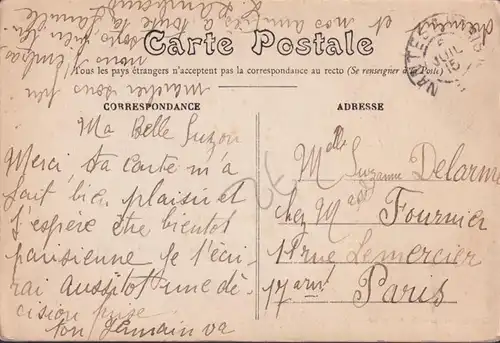 Carte Postale
Tous les pays étrangers n'acceptent pas la correspondance au recto (Se renseigner à la Poste)
CORRESPONDANCE
ADRESSE
Ma Belle Suzon
Merci, ta carte m'a
fait bien plaisir et
j'espère être bientôt
parisienne je t'écri-
rai aussitôt une dé-
cision prise
ton Germain va
marcher sous peu
nous
et nos amitiés à toute ta famille
Melle Suzanne Delarme
chez Mme Fournier
11 rue Lemercier
17 arr
Paris
NANTES
JUIL
15